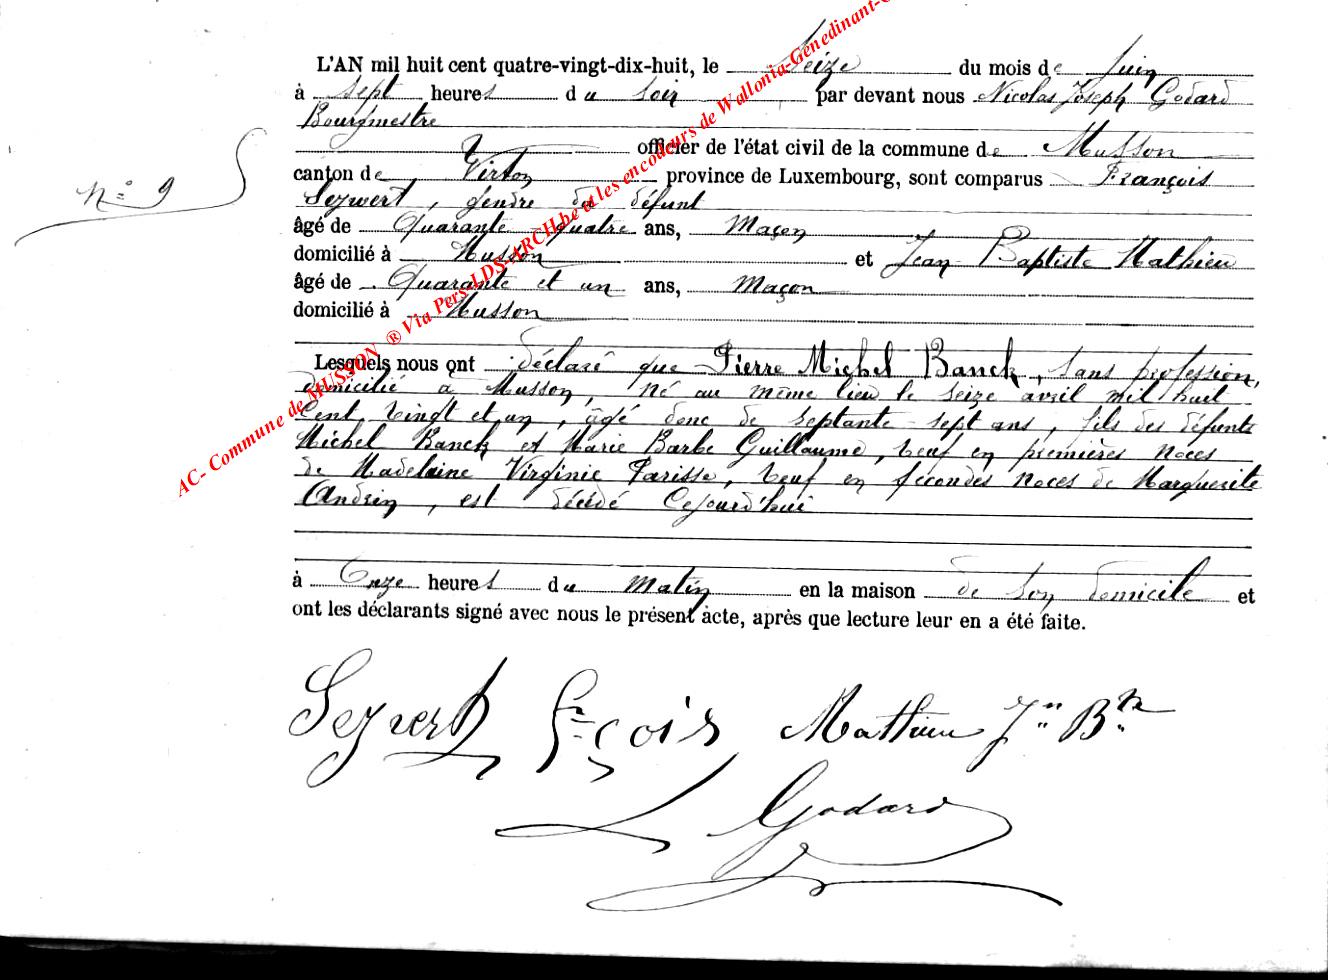 L'AN mil huit cent quatre-vingt-dix-huit, le Seize du mois de Juin
à sept heures du soir par devant nous Nicolas Joseph Godard
Bourgmestre
officier de l'état civil de la commune de Musson
N° 9
canton de Virton province de Luxembourg, sont comparus François
Sezwert, gendre du défunt
âgé de Quarante quatre ans, Maçon
domicilié à Musson et Jean Baptiste Mathieu
âgé de Quarante et un ans, Maçon
domicilié à Musson
Lesquels nous ont déclaré que Pierre Michel Banck, sans profession,
domicilié à Musson, né au même lieu le seize avril mil huit
cent vingt et un, âgé donc de septante sept ans, fils des défunts
Michel Banck et Marie Barbe Guillaume, veuf en premières noces
de Madelaine Virginie Parisse, veuf en secondes noces de Marguerite
Andrin, est décédé cejourd'hui
à Onze heures du matin en la maison de son domicile et
ont les déclarants signé avec nous le présent acte, après que lecture leur en a été faite.
Sezwert Fnçois Mathieu Jn Bte
Godard
AC- Commune de MUSSON ® Via Pers-LDS-ARCH.be et les encodeurs de Wallonia-Genedinant-